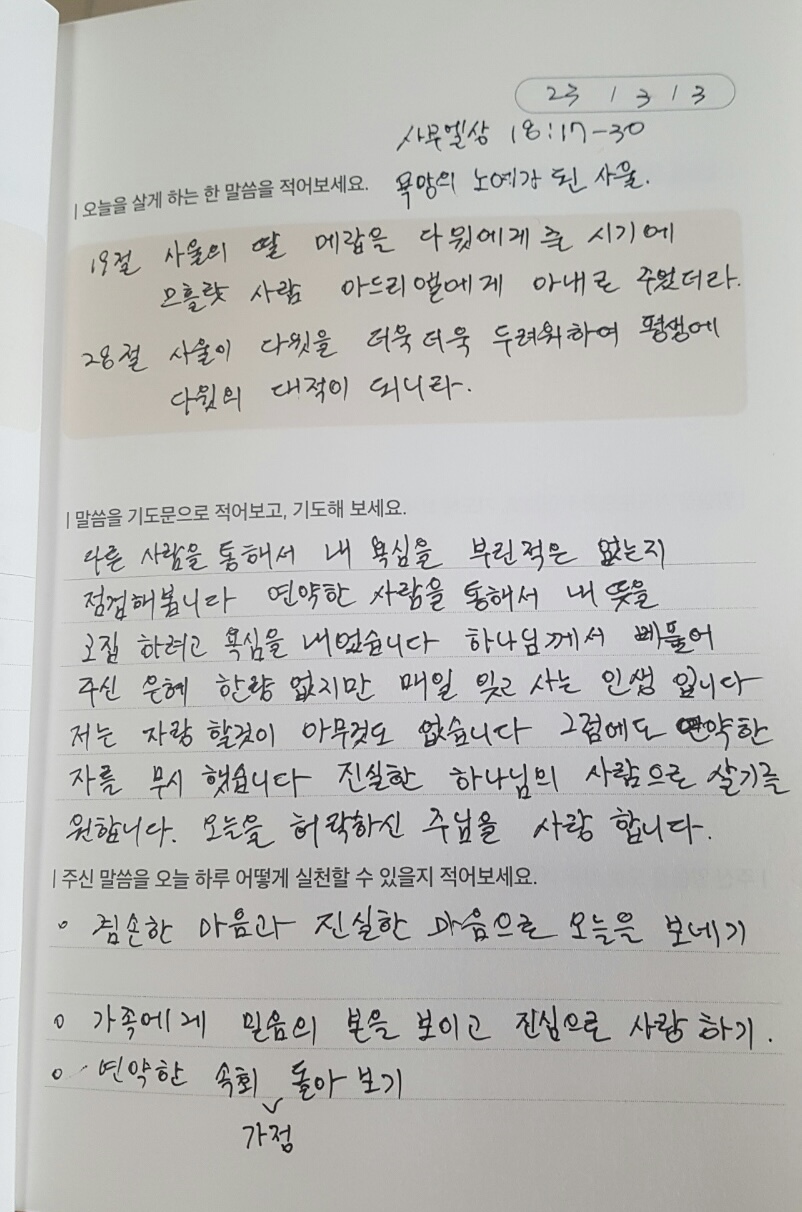 23 / 3 / 3
사무엘상 18:17-30
| 오늘을 살게 하는 한 말씀을 적어보세요. 욕망의 노예가 된 사울.
19절 사울의 딸 메랍을 다윗에게 줄 시기에
므홀랏 사람 아드리엘에게 아내로 주었더라.
28절 사울이 다윗을 더욱더욱 두려워하여 평생에
다윗의 대적이 되니라.
| 말씀을 기도문으로 적어보고, 기도해 보세요.
다른 사람을 통해서 내 욕심을 부린적은 없는지
점검해봅니다 연약한 사람을 통해서 내 뜻을
고집 하려고 욕심을 내었습니다 하나님께서 베풀어
주신 은혜 한량 없지만 매일 잊고 사는 인생 입니다
저는 자랑 할것이 아무것도 없습니다 그럼에도 연약한
자를 무시 했습니다 진실한 하나님의 사람으로 살기를
원합니다. 오늘을 허락하신 주님을 사랑 합니다.
| 주신 말씀을 오늘 하루 어떻게 실천할 수 있을지 적어보세요.
○ 겸손한 마음과 진실한 마음으로 오늘을 보네기
○ 가족에게 믿음의 본을 보이고 진심으로 사랑 하기.
○ 연약한 속회 돌아 보기
가정